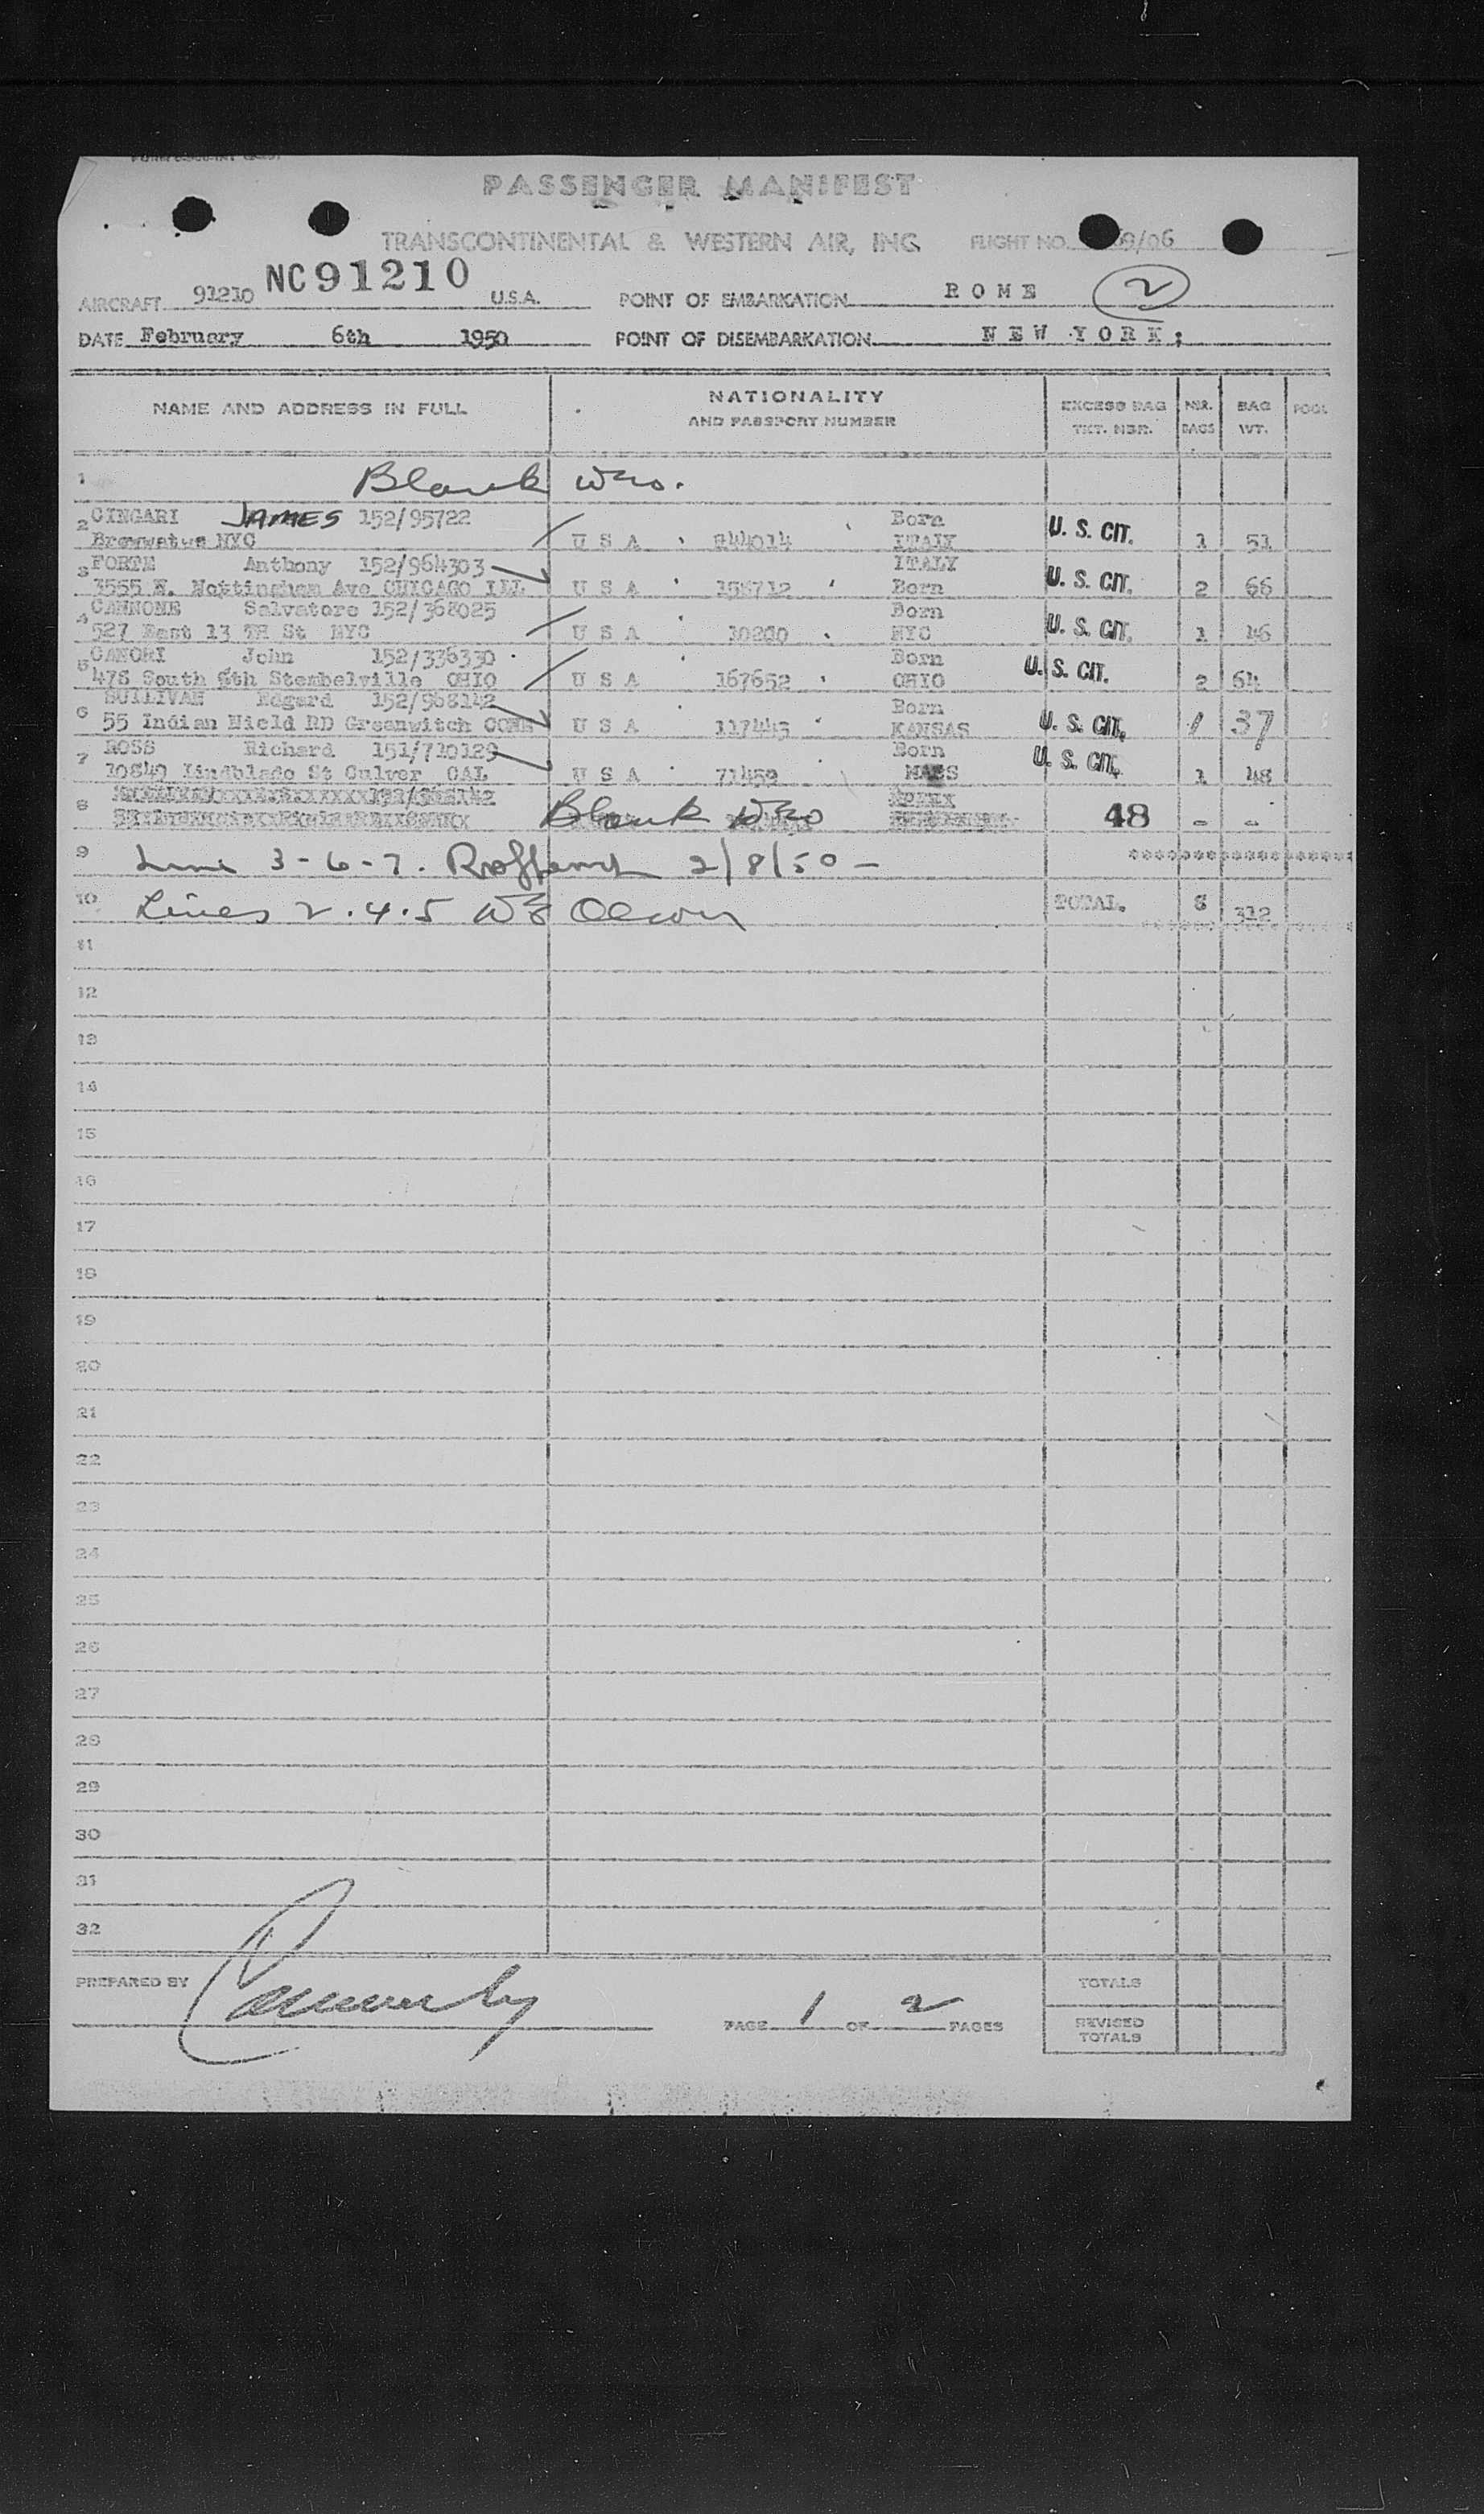 PASSENGER MANIFEST
TRANSCONTINENTAL & WESTERN AIR, INC. FLIGHT NO. 9/06
AIRCRAFT 91210 NC91210 U.S.A. POINT OF EMBARKATION ROME 2
DATE February 6th 1950 POINT OF DISEMBARKATION NEW YORK;
NAME AND ADDRESS IN FULL NATIONALITY AND PASSPORT NUMBER EXCESS BAG TKT. NBR. NBR. BAGS BAG WT. POOL
1 Blank
2 CINGARI JAMES 152/95722 Born
NYC U S A 244014 ITALY U. S. CIT. 1 51
3 FORTE Anthony 152/964303 ITALY
3565 N. Nottingham Ave CHICAGO ILL U S A 158712 Born U. S. CIT. 2 66
4 CANNONE Salvatore 152/368025 Born
527 East 13 TH St NYC U S A 10280 NYC U. S. CIT. 1 46
5 CANORI John 152/336330 Born
478 South 6th Stembelville OHIO U S A 167652 OHIO U. S. CIT. 2 64
6 SULLIVAN Edgard 152/968142 Born
55 Indian Hield RD Greenwitch CONN U S A 117443 KANSAS U. S. CIT. 1 37
7 ROSS Richard 151/710129 Born
10849 Lindblade St Culver CAL U S A 71459 MASS U. S. CIT. 1 48
8 Blank 48 - -
9 Line 3-6-7. 2/8/50 -
10 Lines 2.4.5 TOTAL. 8 312
11
12
13
14
15
16
17
18
19
20
21
22
23
24
25
26
27
28
29
30
31
32
PREPARED BY TOTALS
PAGE 1 OF 2 PAGES REVISED TOTALS